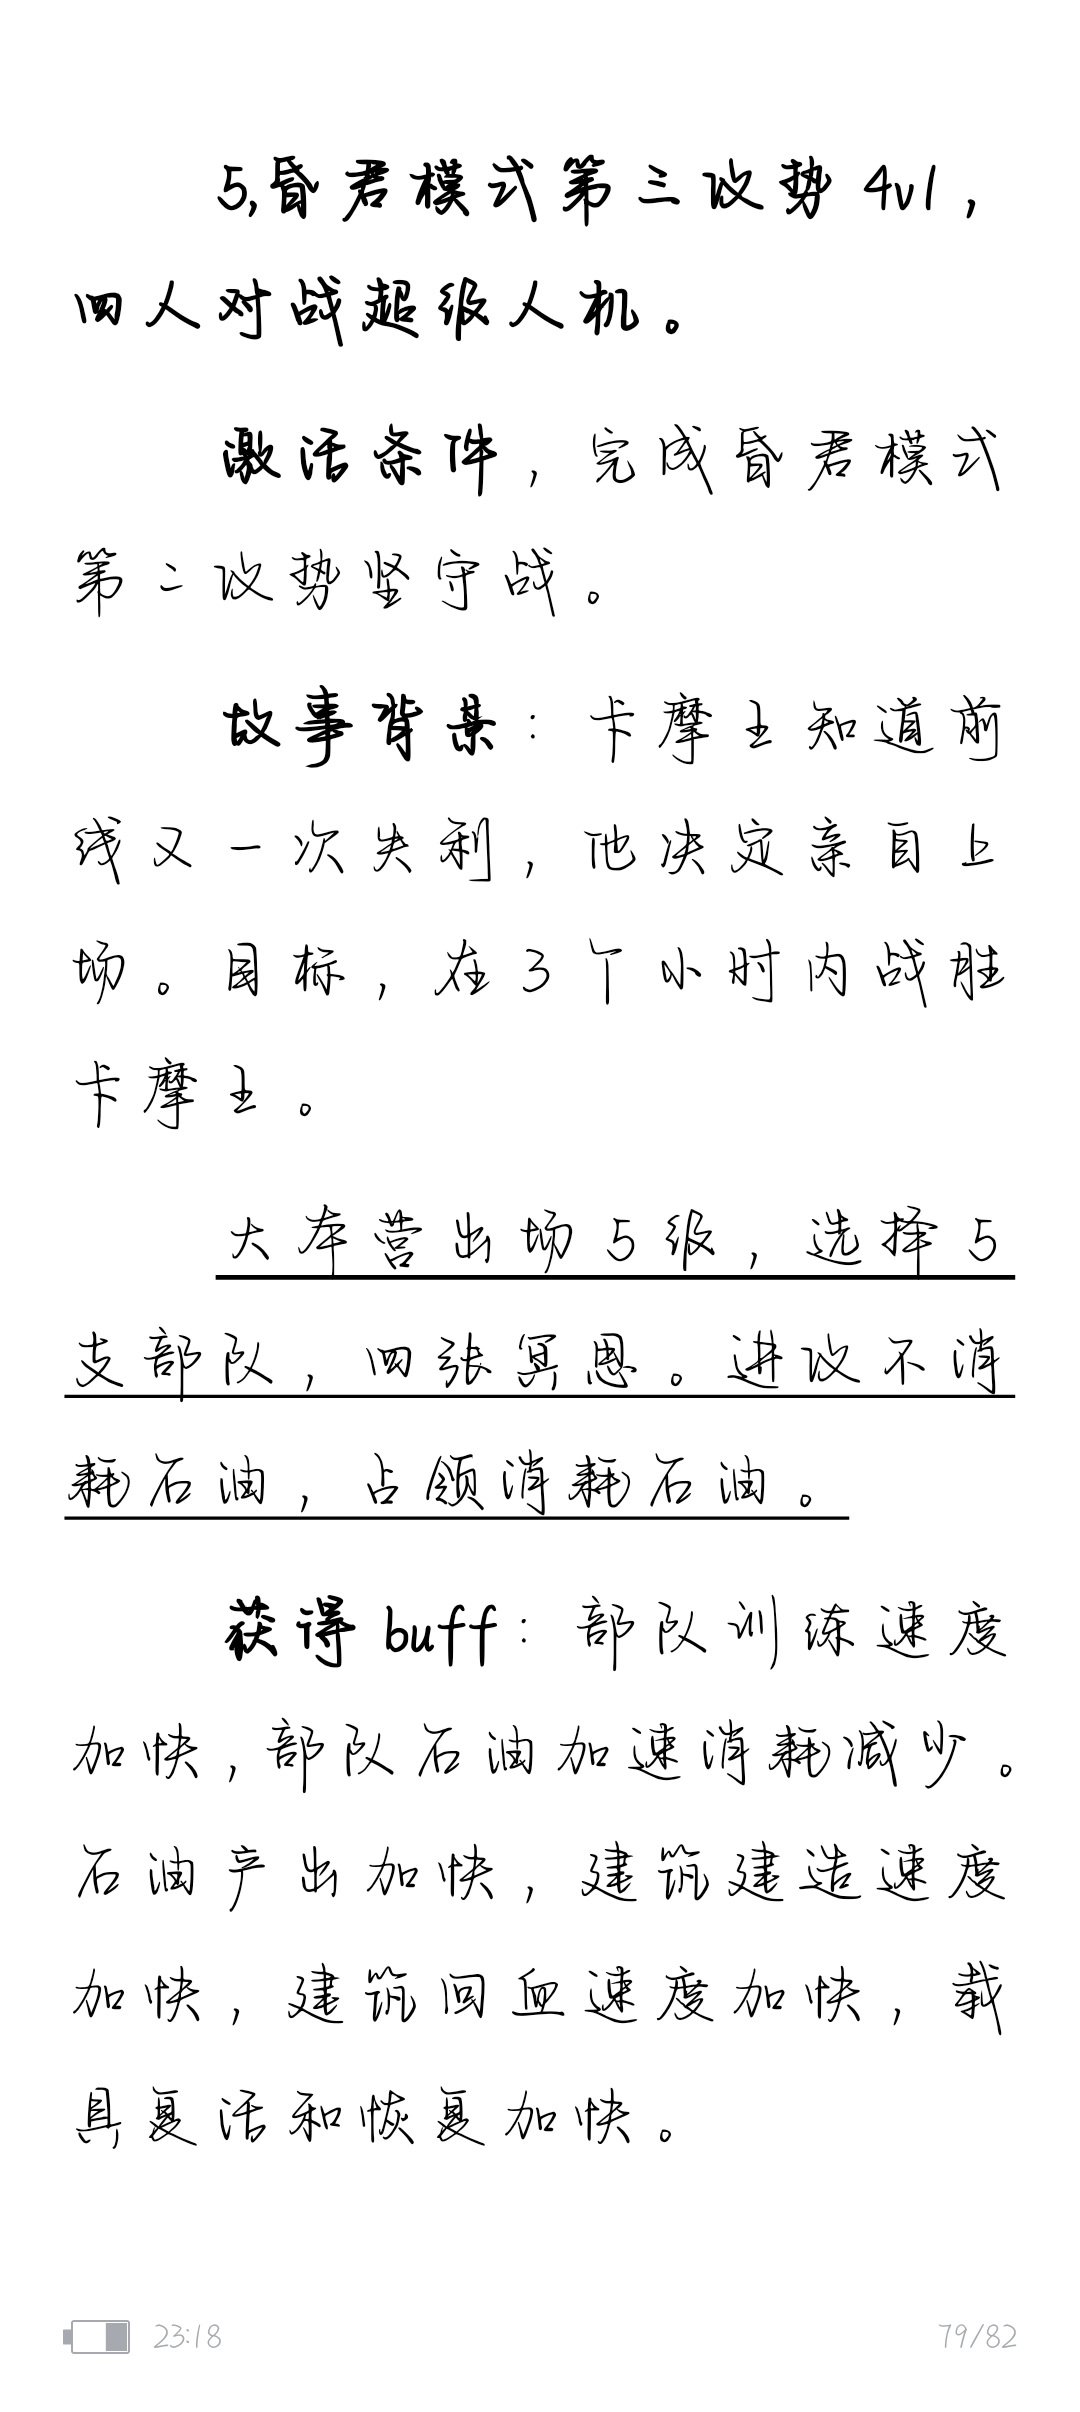 5,昏君模式第三攻势4v1，
四人对战超级人机。
激活条件，完成昏君模式
第二攻势坚守战。
故事背景：卡摩王知道前
线又一次失利，他决定亲自上
场。目标，在3个小时内战胜
卡摩王。
大本营出场5级，选择5
支部队，四张冥思。进攻不消
耗石油，占领消耗石油。
获得buff：部队训练速度
加快，部队石油加速消耗减少。
石油产出加快，建筑建造速度
加快，建筑回血速度加快，载
具复活和恢复加快。
23:18 79/82